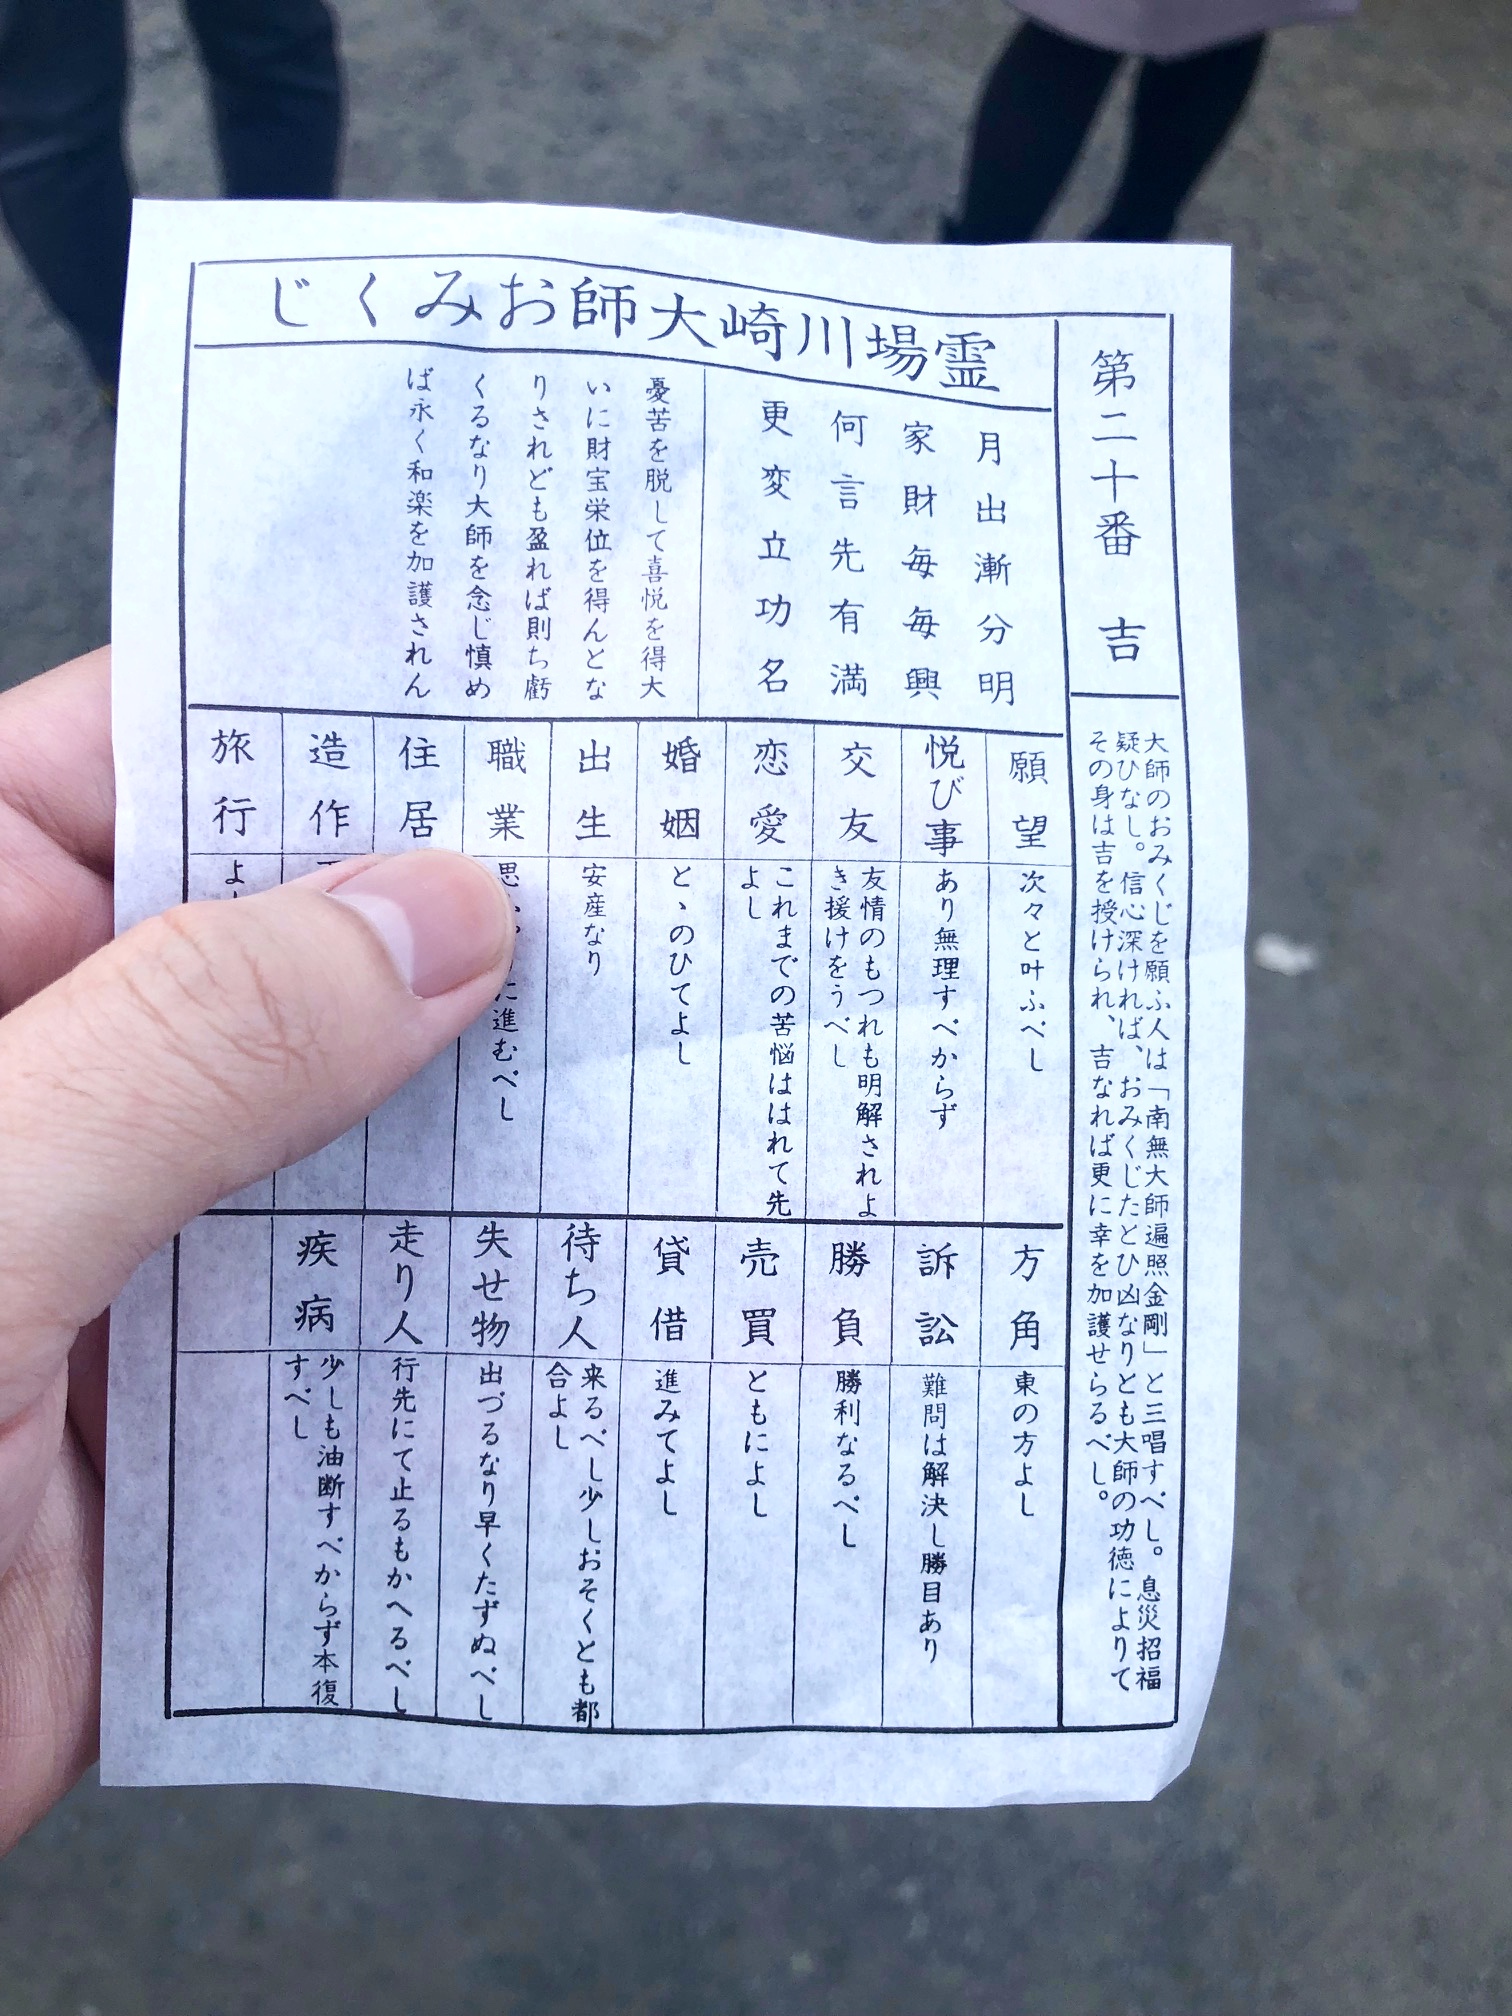 霊場川崎大師おみくじ
第二十番 吉
大師のおみくじを願ふ人は「南無大師遍照金剛」と三唱すべし。息災招福
疑ひなし。信心深ければ、おみくじたとひ凶なりとも大師の功徳によりて
その身は吉を授けられ、吉なれば更に幸を加護せらるべし。
月出漸分明
家財毎毎興
何言先有満
更変立功名
憂苦を脱して喜悦を得大
いに財宝栄位を得んとな
りされども盈れば則ち虧
くるなり大師を念じ慎め
ば永く和楽を加護されん
願望
次々と叶ふべし
悦び事
あり無理すべからず
交友
友情のもつれも明解されよ
き援けをうべし
恋愛
これまでの苦悩ははれて先
よし
婚姻
とゝのひてよし
出生
安産なり
職業
思 に進むべし
住居
造作
旅行
よ
方角
東の方よし
訴訟
難問は解決し勝目あり
勝負
勝利なるべし
売買
ともによし
貸借
進みてよし
待ち人
来るべし少しおそくとも都
合よし
失せ物
出づるなり早くたずぬべし
走り人
行先にて止るもかへるべし
疾病
少しも油断すべからず本復
すべし